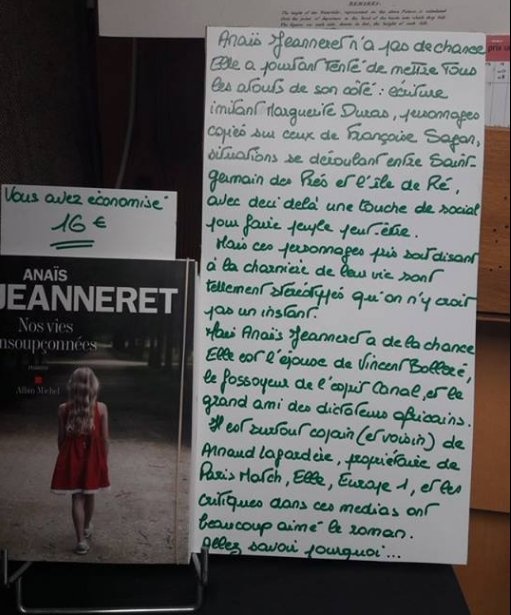 REMISES.
Anaïs Jeanneret n'a pas de chance
Elle a pourtant tenté de mettre tous
les atouts de son côté : écriture
imitant Marguerite Duras, personnages
copiés sur ceux de Françoise Sagan,
situations se déroulant entre Saint-
Germain des Prés et l'île de Ré,
avec deci delà une touche de social
pour faire peuple peut-être.
Mais ces personnages pris soit disant
à la charnière de leur vie sont
tellement stéréotypés qu'on n'y croit
pas un instant.
Mais Anaïs Jeanneret a de la chance
Elle est l'épouse de Vincent Bolloré,
le fossoyeur de l'esprit Canal, et le
grand ami des dictateurs africains.
Il est surtout copain (et voisin) de
Arnaud Lagardère, propriétaire de
Paris Match, Elle, Europe 1, et les
critiques dans ces medias ont
beaucoup aimé le roman.
Allez savoir pourquoi...
Vous avez économisé
16 €
ANAÏS
JEANNERET
Nos vies
insoupçonnées
roman
Albin Michel